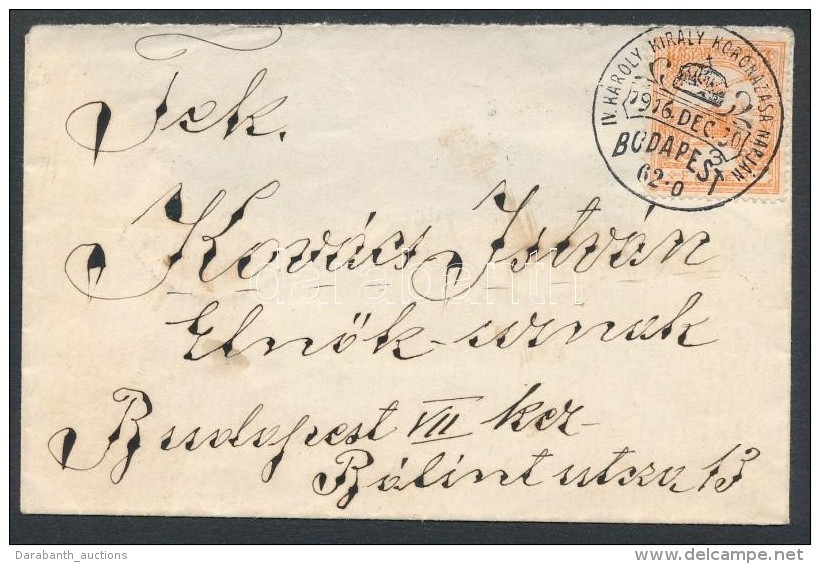 IV. KÁROLY KIRÁLY KORONÁZÁSA NAPJÁN
1916. DEC. 30
BUDAPEST
62-0
2
Tek.
Kovács István
Elnök-urnak
Budapest VII ker-
Bálint utca 13
darabanth
Darabanth_auctions
delcampe.net